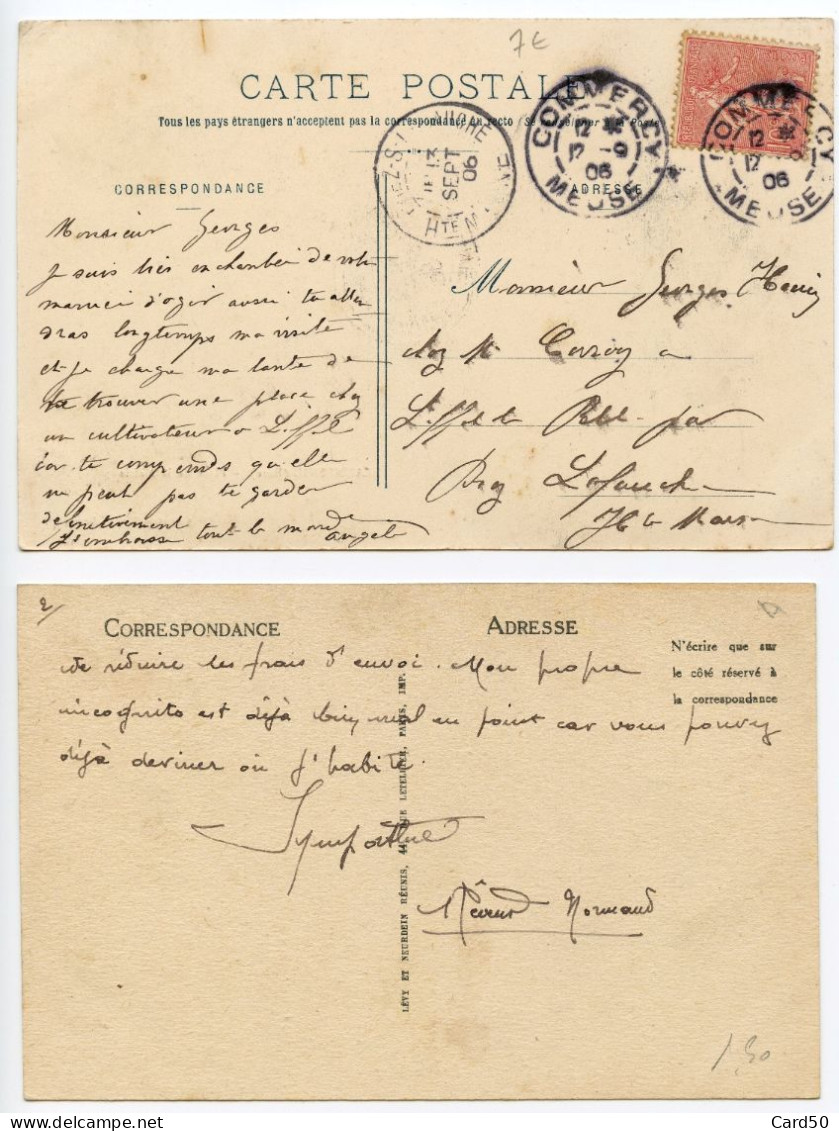 7 €
CARTE POSTALE
Tous les pays étrangers n'acceptent pas la correspondance au recto (Se renseigner à la Poste)
CORRESPONDANCE
ADRESSE
COMMERCY
12 * 
12 -9
06
MEUSE
COMMERCY
12 *
12 9
06
MEUSE
13
SEPT
06
HTE M
Monsieur Georges
je suis très
d'agir aussi
dras longtemps ma visite
et je charge ma tante de
te trouver une place chez
un cultivateur a Liffol
car tu comprends qu'elle
ne peut pas te garder
définitivement
J'embrasse tout le monde
Angele
Monsieur Georges
chez Mr a
Liffol le Petit par
Prez Lafauche
Hte Marne
2/
CORRESPONDANCE
ADRESSE
N'écrire que sur
le côté réservé à
la correspondance
de réduire les frais d'envoi. Mon propre
incognito est déjà bien mal en point car vous pouvez
déjà deviner où j'habite.
LÉVY ET NEURDEIN RÉUNIS, 44, RUE LETELLIER, PARIS, IMP.
Normand
1,50
Card50